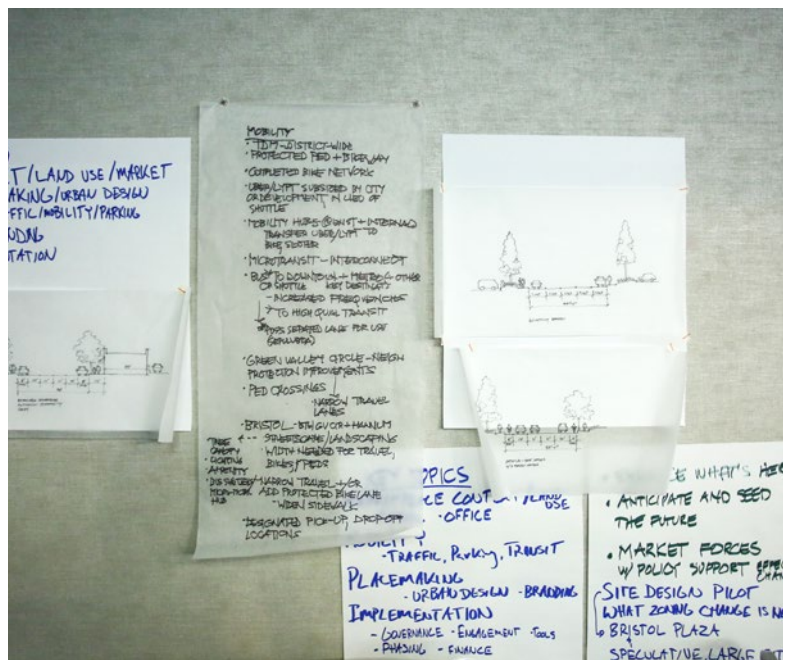 T/LAND USE/MARKET
AKING/URBAN DESIGN
FFIC/MOBILITY/PARKING
NDING
TATION
MOBILITY
· TDM-DISTRICT-WIDE
· PROTECTED PED + BIKEWAY
· COMPLETED BIKE NETWORK
· UBER/LYFT SUBSIDED BY CITY
OR DEVELOPMENT IN LIEU OF
SHUTTLE
· MOBILITY HUBS @
TRANSFER UBER/LYFT TO
BIKE, SCOOTER
· MICROTRANSIT - INTERCONNECT
· BUS TO DOWNTOWN + METRO & OTHER
OR SHUTTLE KEY DESTINATS
- INCREASED FREQUENCIES
TO HIGH QUAL TRANSIT
SEPARATED LANE FOR USE
(SEPULVEDA)
· GREEN VALLEY CIRCLE - NEIGH
PROTECTION IMPROVEMENTS
· PED CROSSINGS
· NARROW TRAVEL
LANES
· BRISTOL - BTW GUCOR + HANNUM
-- STREETSCAPE/LANDSCAPING
· WIDTH NEEDED FOR TRAVEL,
BIKES/PEDS
TREE
CANOPY
AMENITY
HUB
NARROW TRAVEL → OR
ADD PROTECTED BIKE LANE
- WIDEN SIDEWALK
· DESIGNATED PICK-UP, DROP-OFF
LOCATIONS
OPICS
CE CONT /LAND
USE
· OFFICE
- TRAFFIC, Parking, TRANSIT
PLACEMAKING
- URBAN DESIGN - BRANDING
IMPLEMENTATION
- GOVERNANCE - ENGAGEMENT - TOOLS
- PHASING - FINANCE
CE WHAT'S HERE
· ANTICIPATE AND SEED
THE FUTURE
· MARKET FORCES
W/ POLICY SUPPORT EFFEC
CHAN
SITE DESIGN PILOT
WHAT ZONING CHANGE IS N
BRISTOL PLAZA
SPECULATIVE, LARGE